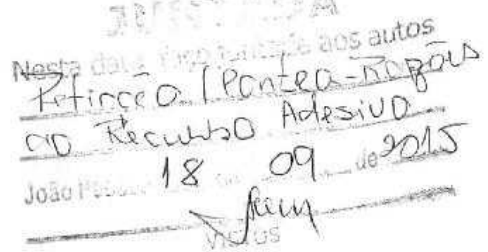 Nesta data faço juntada aos autos
Petição (Contra-Razões
ao Recurso Adesivo
João 18 09 de 2015